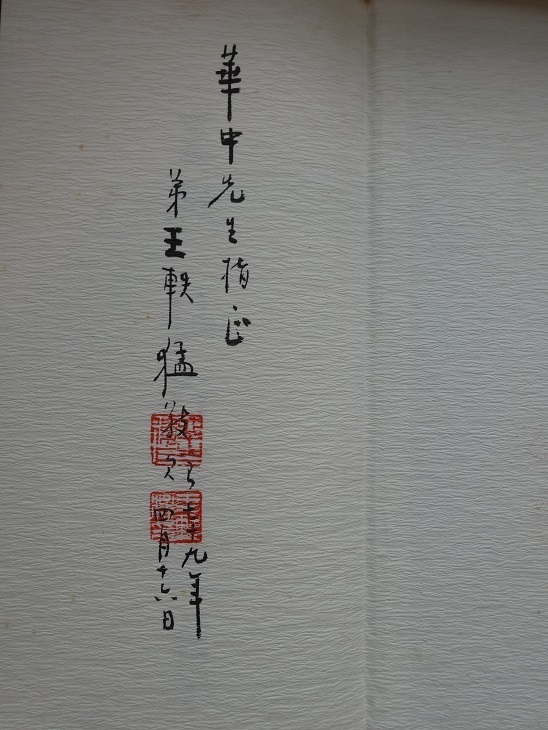 華中先生指正
弟王軼猛敬贈
七十九年
四月十六日